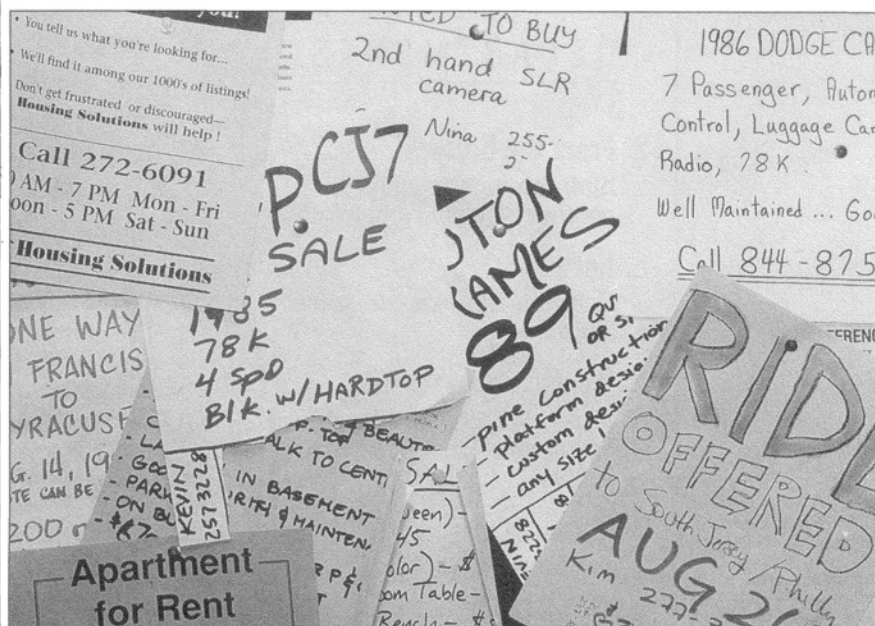 you!
• You tell us what you're looking for...
• We'll find it among our 1000's of listings!
Don't get frustrated or discouraged—
Housing Solutions will help !
Call 272-6091
AM - 7 PM Mon - Fri
oon - 5 PM Sat - Sun
Housing Solutions
TO BUY
2nd hand SLR
camera
Nina 255-
1986 DODGE CA
7 Passenger, Autom
Control, Luggage Car
Radio, 78K
Well Maintained ... Goo
Call 844-875
P. CJ7
SALE
1985
78K
4 SPD
Blk. W/HARDTOP
UTON
RAMES
89
OR
- pine construction
- platform desig
- custom desi
- any size
NE WAY
FRANCIS
TO
YRACUSE
G. 14, 19
TE CAN BE
200 or
KEVIN
2573228
- PARK
ON BU
TOP
BEAUT
ALK TO CENT
IN BASEMENT
MAINTEN
SAL
ueen) -
45
olor) - $
om Table -
Bench - $
Apartment
for Rent
RIDE
OFFERED
to South Jersey / Philly
AUG 2
Kim 277-